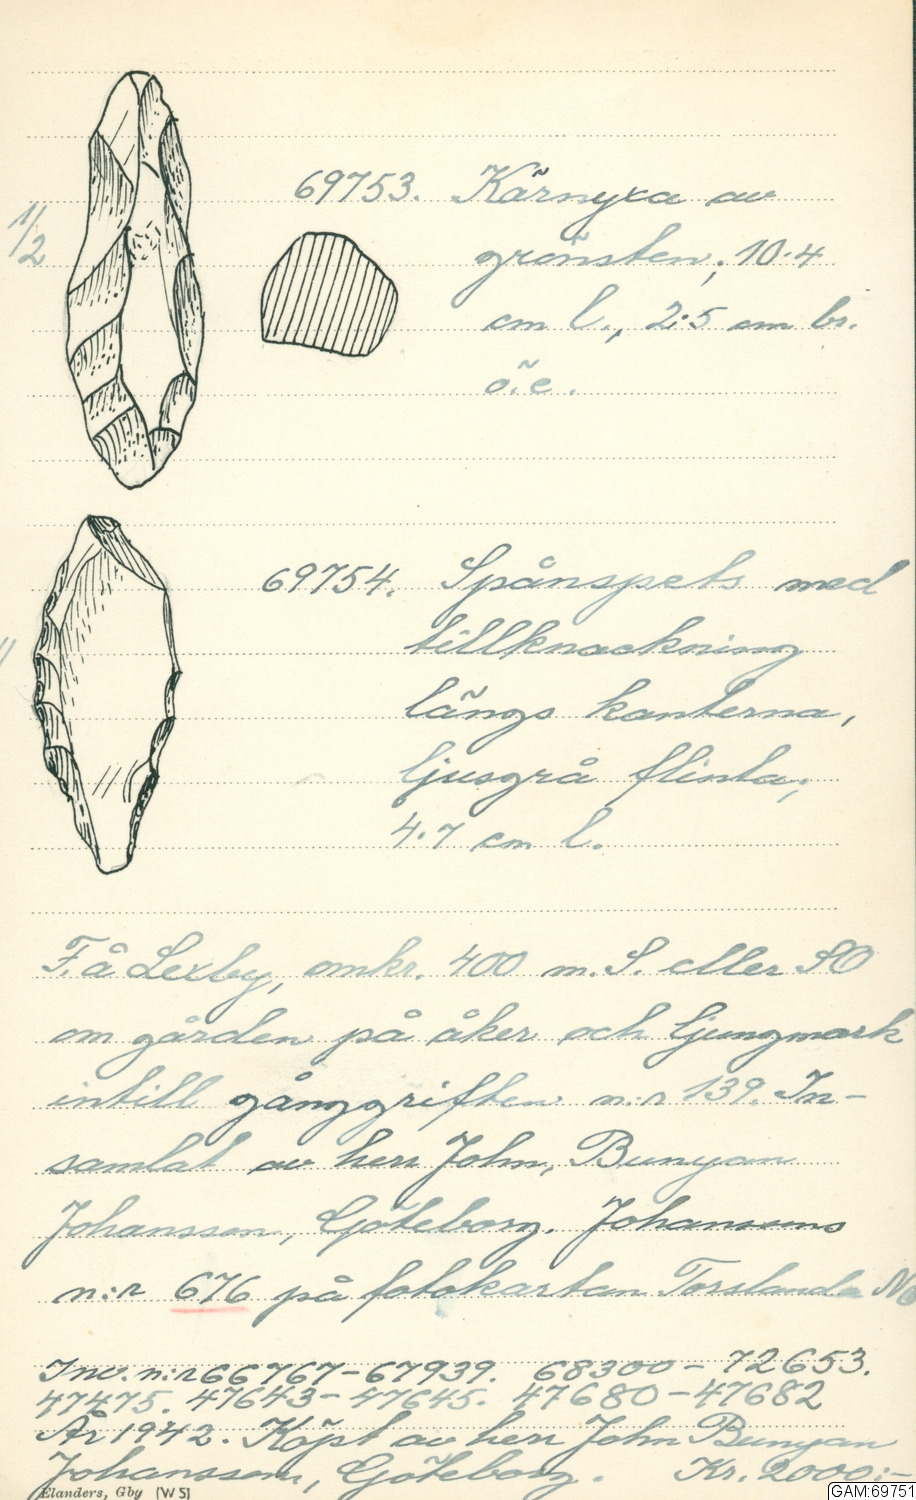 1/2
69753. Kärnyxa av
grönsten; 10.4
cm l., 2.5 cm br.
ö.e.
69754. Spånspets med
tillknackning
längs kanterna,
ljusgrå flinta;
4.7 cm l.
F. å Lexby, omkr. 400 m. S. eller SO
om gården på åker och ljungmark
intill gånggriften n:r 139. In-
samlat av herr John, Bunyan
Johansson, Göteborg. Johanssons
n:r 676 på fotokartan Torslanda No
Inv. n:r 66767-67939. 68300-72653.
47475. 47643-47645. 47680-47682
År 1942. Köpt av herr John Bunyan
Johansson, Göteborg. Kr. 2000:-
Elanders, Gby (WS)
GAM:69751